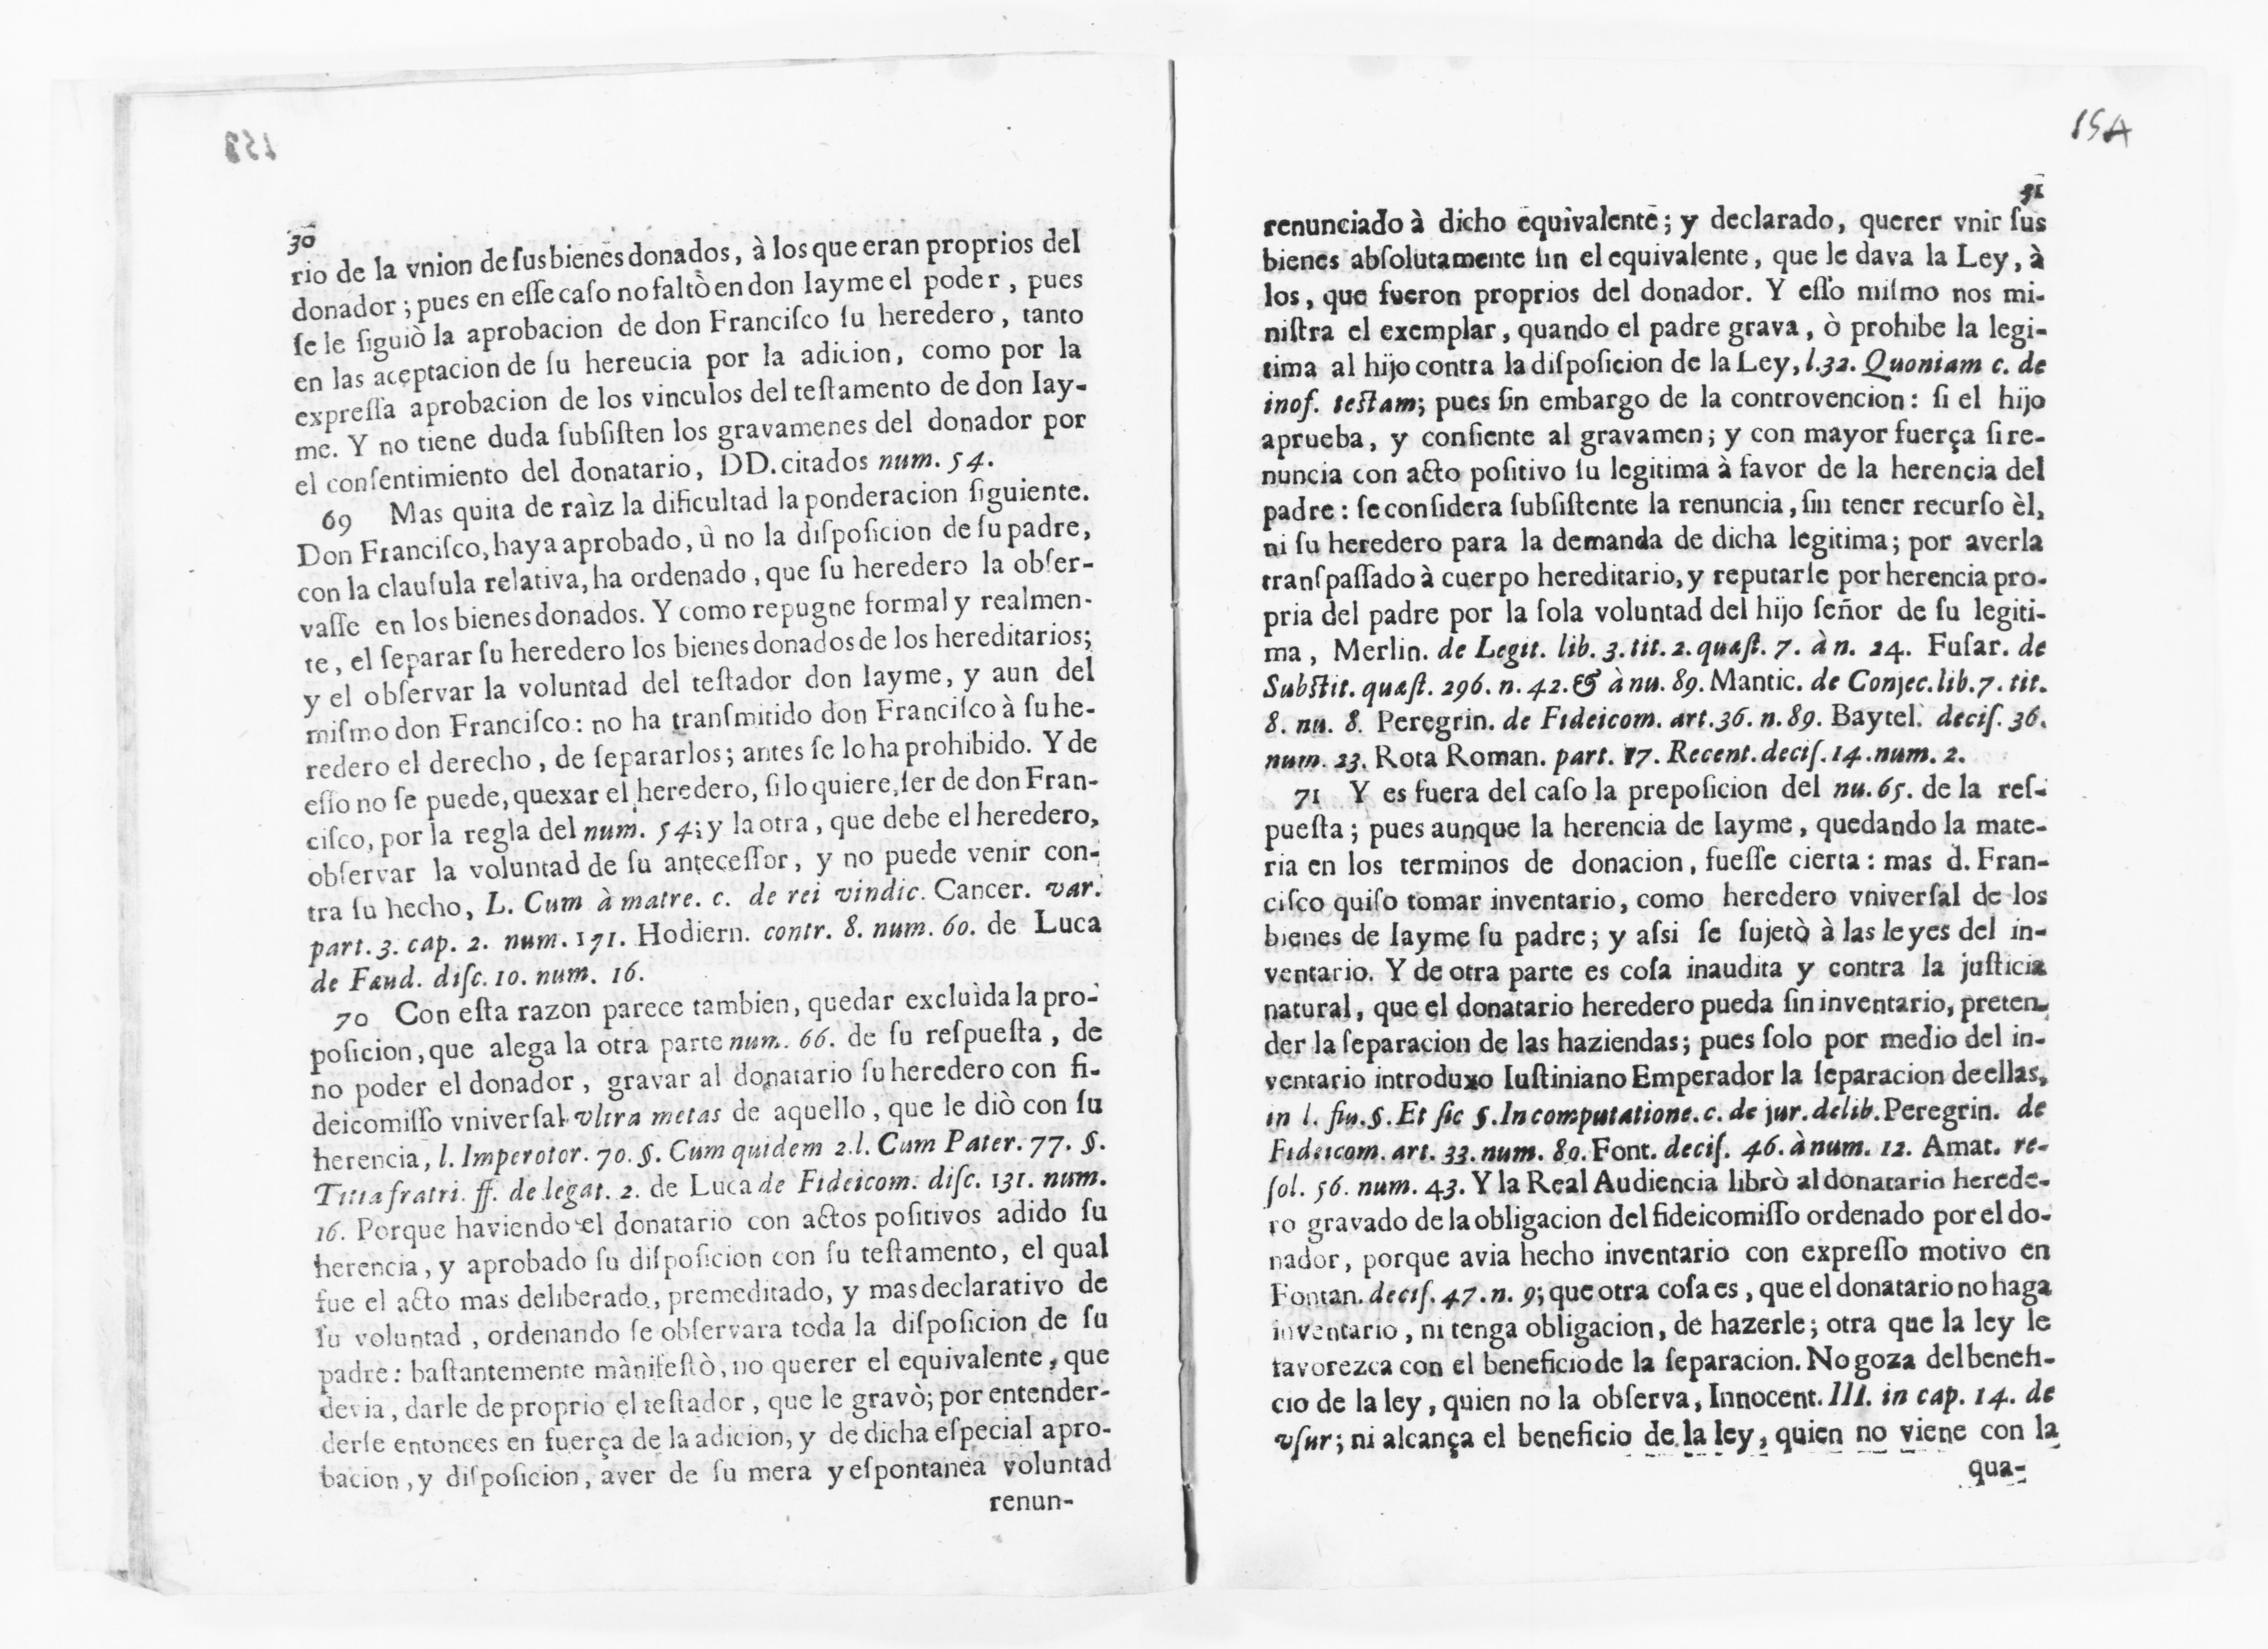 30
rio de la vnion de ſus bienes donados, à los que eran proprios del
donador; pues en eſſe caſo no faltò en don Iayme el poder, pues
ſe le ſiguiò la aprobacion de don Franciſco ſu heredero, tanto
en las aceptacion de ſu hereucia por la adicion, como por la
expreſſa aprobacion de los vinculos del teſtamento de don Iay-
me. Y no tiene duda ſubſiſten los gravamenes del donador por
el conſentimiento del donatario, DD. citados num. 54.
69 Mas quita de raìz la dificultad la ponderacion ſiguiente.
Don Franciſco, haya aprobado, ù no la diſpoſicion de ſu padre,
con la clauſula relativa, ha ordenado, que ſu heredero la obſer-
vaſſe en los bienes donados. Y como repugne formal y realmen-
te, el ſeparar ſu heredero los bienes donados de los hereditarios;
y el obſervar la voluntad del teſtador don Iayme, y aun del
miſmo don Franciſco: no ha tranſmitido don Franciſco à ſu he-
redero el derecho, de ſepararlos; antes ſe lo ha prohibido. Y de
eſſo no ſe puede, quexar el heredero, ſi lo quiere, ſer de don Fran-
ciſco, por la regla del num. 54; y la otra, que debe el heredero,
obſervar la voluntad de ſu anteceſſor, y no puede venir con-
tra ſu hecho, L. Cum à matre. c. de rei vindic. Cancer. var.
part. 3. cap. 2. num. 171. Hodiern. contr. 8. num. 60. de Luca
de Fæud. diſc. 10. num. 16.
70 Con eſta razon parece tambien, quedar excluìda la pro-
poſicion, que alega la otra parte num. 66. de ſu reſpueſta, de
no poder el donador, gravar al donatario ſu heredero con fi-
deicomiſſo vniverſal vltra metas de aquello, que le diò con ſu
herencia, l. Imperotor. 70. §. Cum quidem 2. l. Cum Pater. 77. §.
Titia fratri. ff. de legat. 2. de Luca de Fideicom. diſc. 131. num.
16. Porque haviendo el donatario con actos poſitivos adido ſu
herencia, y aprobado ſu diſpoſicion con ſu teſtamento, el qual
fue el acto mas deliberado, premeditado, y mas declarativo de
ſu voluntad, ordenando ſe obſervara toda la diſpoſicion de ſu
padre: baſtantemente mànifeſtò, no querer el equivalente, que
devia, darle de proprio el teſtador, que le gravò; por entender-
derſe entonces en fuerça de la adicion, y de dicha eſpecial apro-
bacion, y diſpoſicion, aver de ſu mera y eſpontanea voluntad
renun-
154
31
renunciado à dicho equivalente; y declarado, querer vnir ſus
bienes abſolutamente ſin el equivalente, que le dava la Ley, à
los, que fueron proprios del donador. Y eſſo miſmo nos mi-
niſtra el exemplar, quando el padre grava, ò prohibe la legi-
tima al hijo contra la diſpoſicion de la Ley, l. 32. Quoniam c. de
inof. teſtam; pues ſin embargo de la controvencion: ſi el hijo
aprueba, y conſiente al gravamen; y con mayor fuerça ſi re-
nuncia con acto poſitivo ſu legitima à favor de la herencia del
padre: ſe conſidera ſubſiſtente la renuncia, ſin tener recurſo èl,
ni ſu heredero para la demanda de dicha legitima; por averla
tranſpaſſado à cuerpo hereditario, y reputarſe por herencia pro-
pria del padre por la ſola voluntad del hijo ſeñor de ſu legiti-
ma, Merlin. de Legit. lib. 3. tit. 2. quæſt. 7. à n. 24. Fuſar. de
Subſtit. quæſt. 296. n. 42. & à nu. 89. Mantic. de Conjec. lib. 7. tit.
8. nu. 8. Peregrin. de Fideicom. art. 36. n. 89. Baytel. deciſ. 36.
num. 23. Rota Roman. part. 17. Recent. deciſ. 14. num. 2.
71 Y es fuera del caſo la prepoſicion del nu. 65. de la reſ-
pueſta; pues aunque la herencia de Iayme, quedando la mate-
ria en los terminos de donacion, fueſſe cierta: mas d. Fran-
ciſco quiſo tomar inventario, como heredero vniverſal de los
bienes de Iayme ſu padre; y aſsi ſe ſujetò à las leyes del in-
ventario. Y de otra parte es coſa inaudita y contra la juſticia
natural, que el donatario heredero pueda ſin inventario, preten-
der la ſeparacion de las haziendas; pues ſolo por medio del in-
ventario introduxo Iuſtiniano Emperador la ſeparacion de ellas,
in l. fin. §. Et ſic §. In computatione. c. de jur. delib. Peregrin. de
Fideicom. art. 33. num. 80. Font. deciſ. 46. à num. 12. Amat. re-
ſol. 56. num. 43. Y la Real Audiencia librò al donatario herede-
ro gravado de la obligacion del fideicomiſſo ordenado por el do-
nador, porque avia hecho inventario con expreſſo motivo en
Fontan. deciſ. 47. n. 9; que otra coſa es, que el donatario no haga
inventario, ni tenga obligacion, de hazerle; otra que la ley le
favorezca con el beneficio de la ſeparacion. No goza del benefi-
cio de la ley, quien no la obſerva, Innocent. III. in cap. 14. de
vſur; ni alcança el beneficio de la ley, quien no viene con la
qua-